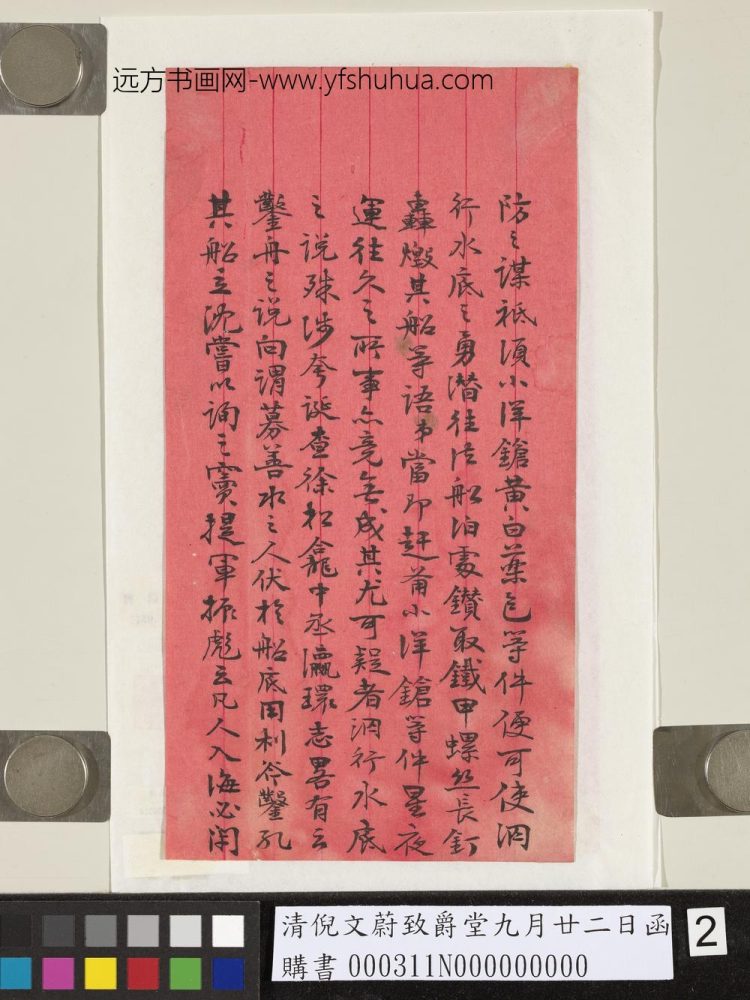 远方书画网-www.yfshuhua.com
防之謀祗須小洋鎗黃白藥包等件便可使泅
行水底之勇潛往法船泊處鑽取鐵甲螺丝長釘
轟燬其船等語弟當即趕备小洋鎗等件星夜
運往久之所事亦竟無成其尤可疑者泅行水底
之说殊涉夸诞查徐松龕中丞瀛環志畧有云
鑿舟之说向謂募善水之人伏於船底用利斧鑿孔
其船立沈嘗以詢之竇提軍振彪云凡人入海必闭
清倪文蔚致爵堂九月廿二日函
購書 000311N000000000
2